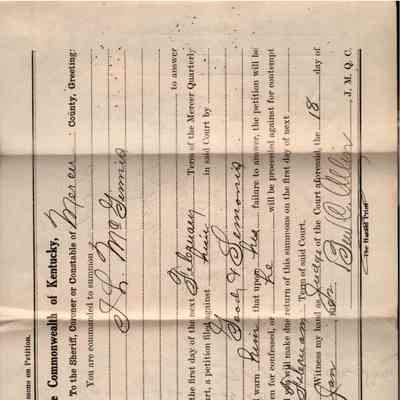 mons on Petition.
e Commonwealth of Kentucky,
To the Sheriff, Coroner or Constable of Mercer County, Greeting:
You are commanded to summon
McGinnis
to answer
the first day of the next February Term of the Mercer Quarterly
urt, a petition filed against him in said Court by
Good & Simonis
warn him that upon his failure to answer, the petition will be
en for confessed, or he will be proceeded against for contempt
will make due return of this summons on the first day of next
February Term of said Court.
Witness my hand as Judge of the Court aforesaid, the 18 day of
Jan Ben C. Allin J. M. Q. C.
The Harold Print